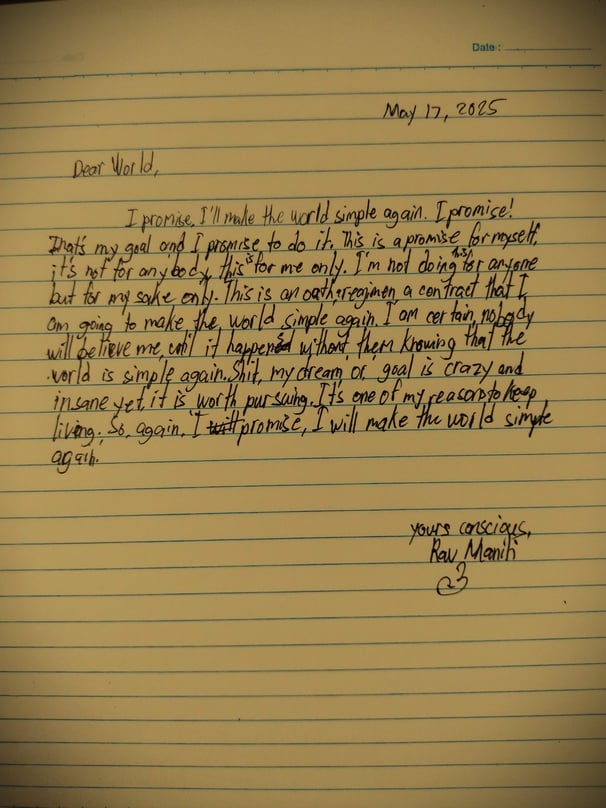 Date :
May 17, 2025
Dear World,
I promise, I'll make the world simple again. I promise!
That's my goal and I promise to do it. This is a promise for myself,
it's not for anybody, this is for me only. I'm not doing this for anyone
but for my sake only. This is an oath, regimen a contract that I
am going to make the world simple again. I am certain, nobody
will believe me, until it happened without them knowing that the
world is simple again. Shit, my dream or goal is crazy and
insane yet, it is worth pursuing. It's one of my reasons to keep
living. So, again, I will promise, I will make the world simple
again.
yours conscious,
Rav Maniti